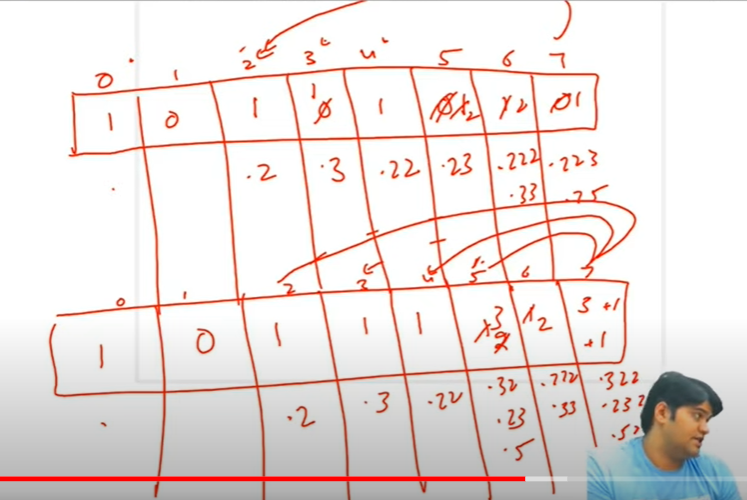 0 1 2 3 4 5 6 7
1 0 1 1 0 1 0 1 2 1 2 0 1
. .2 .3 .22 .23 .222 .223
.33 .25
0 1 2 3 4 5 6 7
1 0 1 1 1 1 3 2 1 2 3 +1
+1
. .2 .3 .22 .32 .222 .322
.23 .33 .232
.5 .52